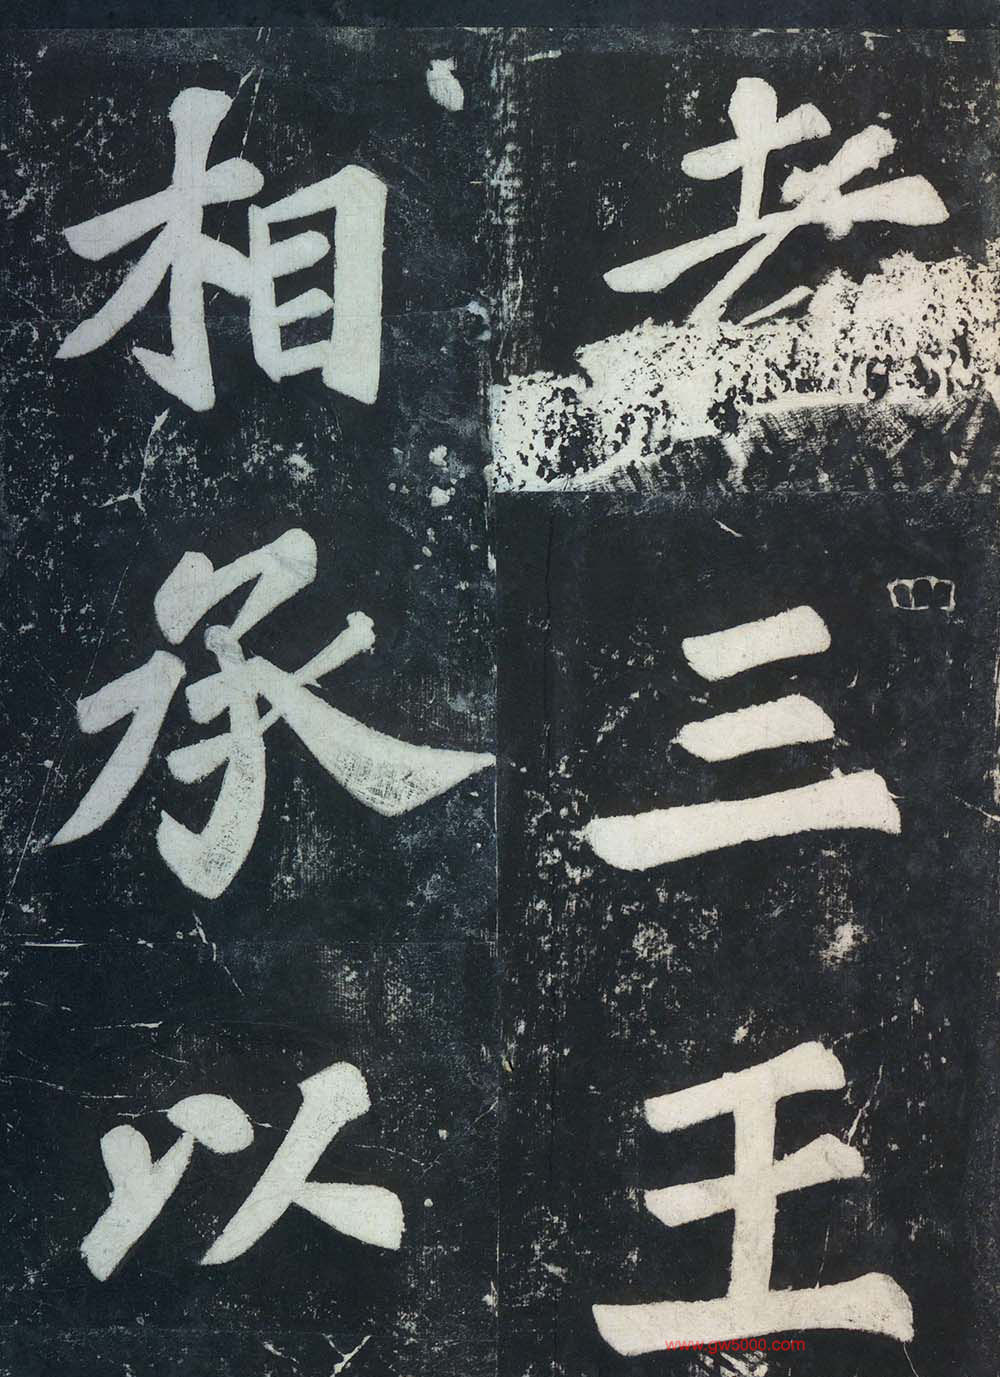 三王
相承以
www.gw5000.com